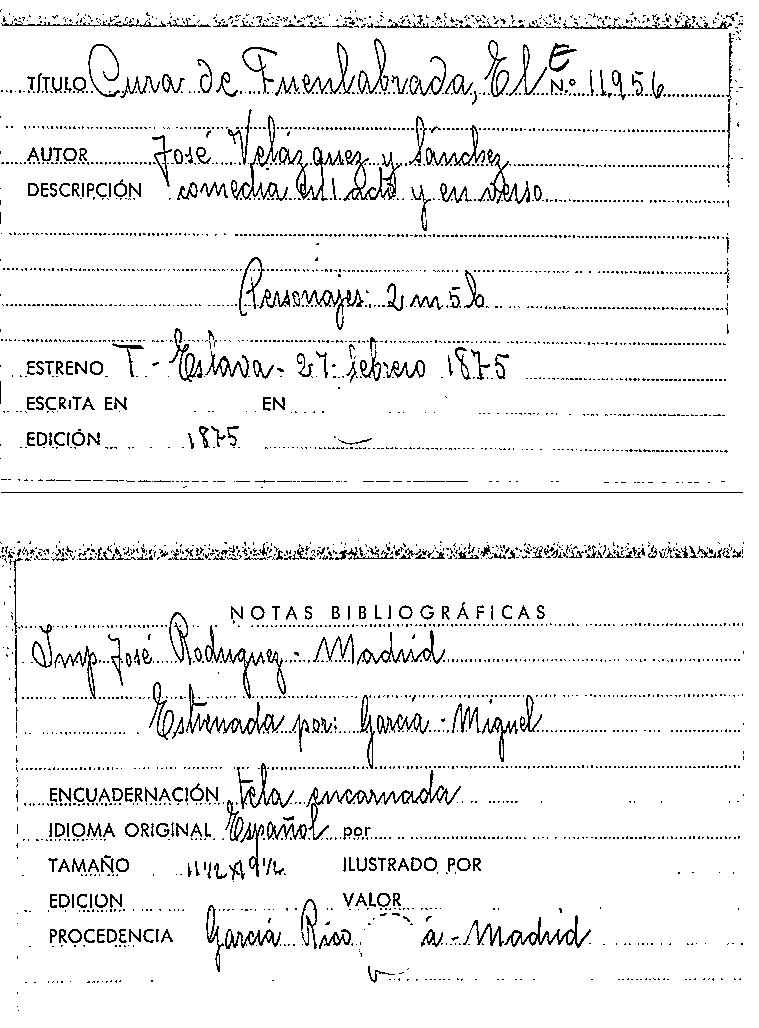 TÍTULO Cura de Fuenlabrada, El E N.º 11956
AUTOR José Velázquez y Sánchez
DESCRIPCIÓN comedia en 1 acto y en verso
Personajes: 2 m 5 h
ESTRENO T - Eslava - 27 - febrero 1875
ESCRITA EN EN
EDICIÓN 1875
NOTAS BIBLIOGRÁFICAS
Imp José Rodriguez - Madrid
Estrenada por: García - Miguel
ENCUADERNACIÓN tela encarnada
IDIOMA ORIGINAL Español por
TAMAÑO ILUSTRADO POR
EDICION VALOR
PROCEDENCIA García Rico á - Madrid